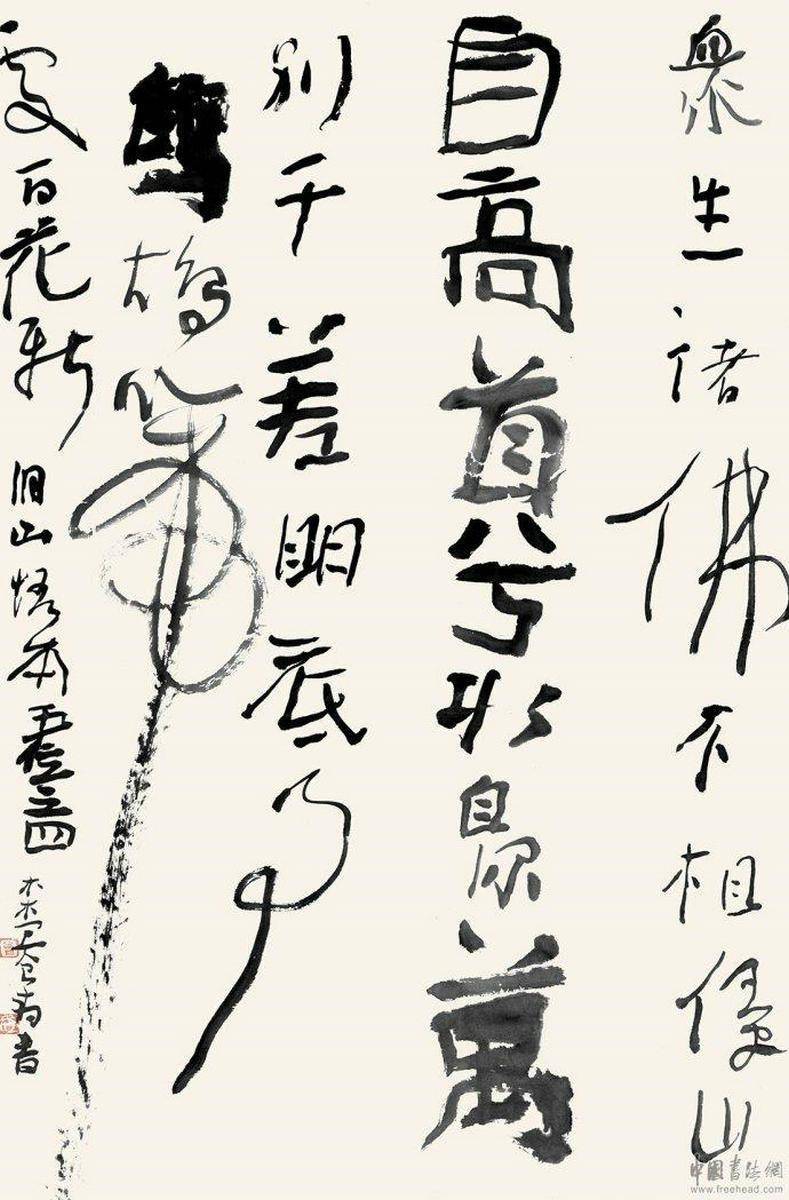 眾生諸佛不相侵山
自高首兮水自深萬
別千差明底事
鷓鴣啼
處百花新 洞山悟本 之四
書
中國書法網
www.freehead.com